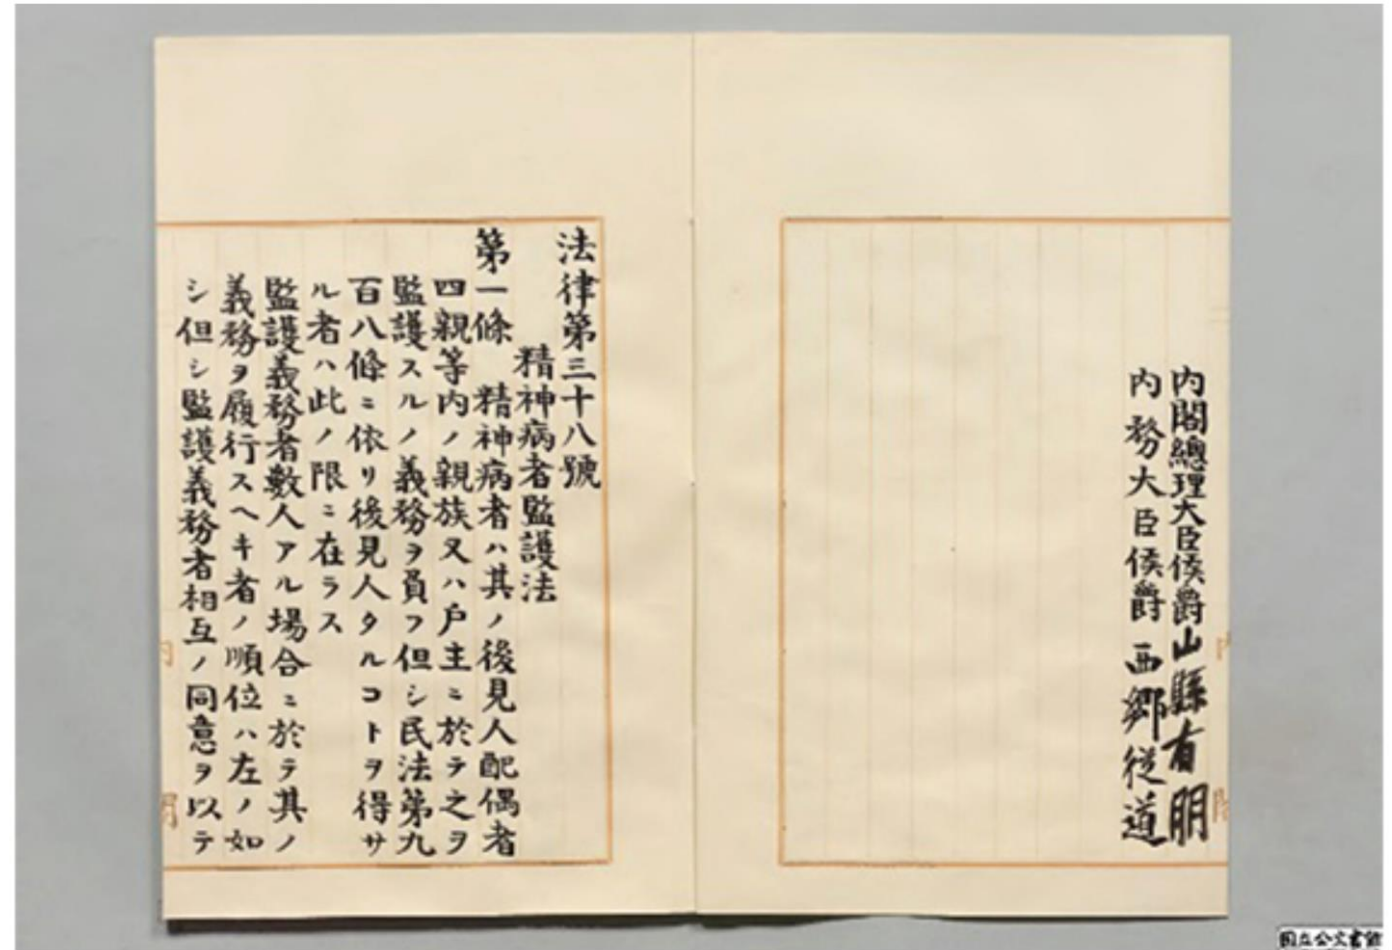 内閣總理大臣侯爵山縣有朋
内務大臣侯爵西郷從道
法律第三十八號
精神病者監護法
第一條　精神病者ハ其ノ後見人配偶者
四親等内ノ親族又ハ戸主ニ於テ之ヲ
監護スルノ義務ヲ負フ但シ民法第九
百八條ニ依リ後見人タルコトヲ得サ
ル者ハ此ノ限ニ在ラス
監護義務者數人アル場合ニ於テ其ノ
義務ヲ履行スヘキ者ノ順位ハ左ノ如
シ但シ監護義務者相互ノ同意ヲ以テ
国立公文書館